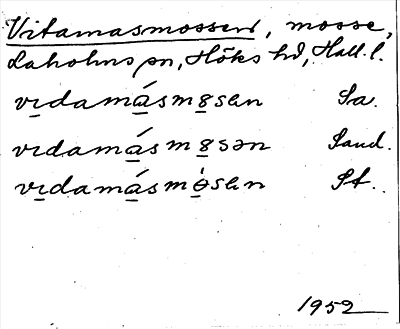 Vitamasmossen, mosse,
Laholms sn, Höks hd, Hall. l.
vıdamásm8sen Sa.
vıdamásm8sən Sand.
vıdamásmɵ́sen St.
1952